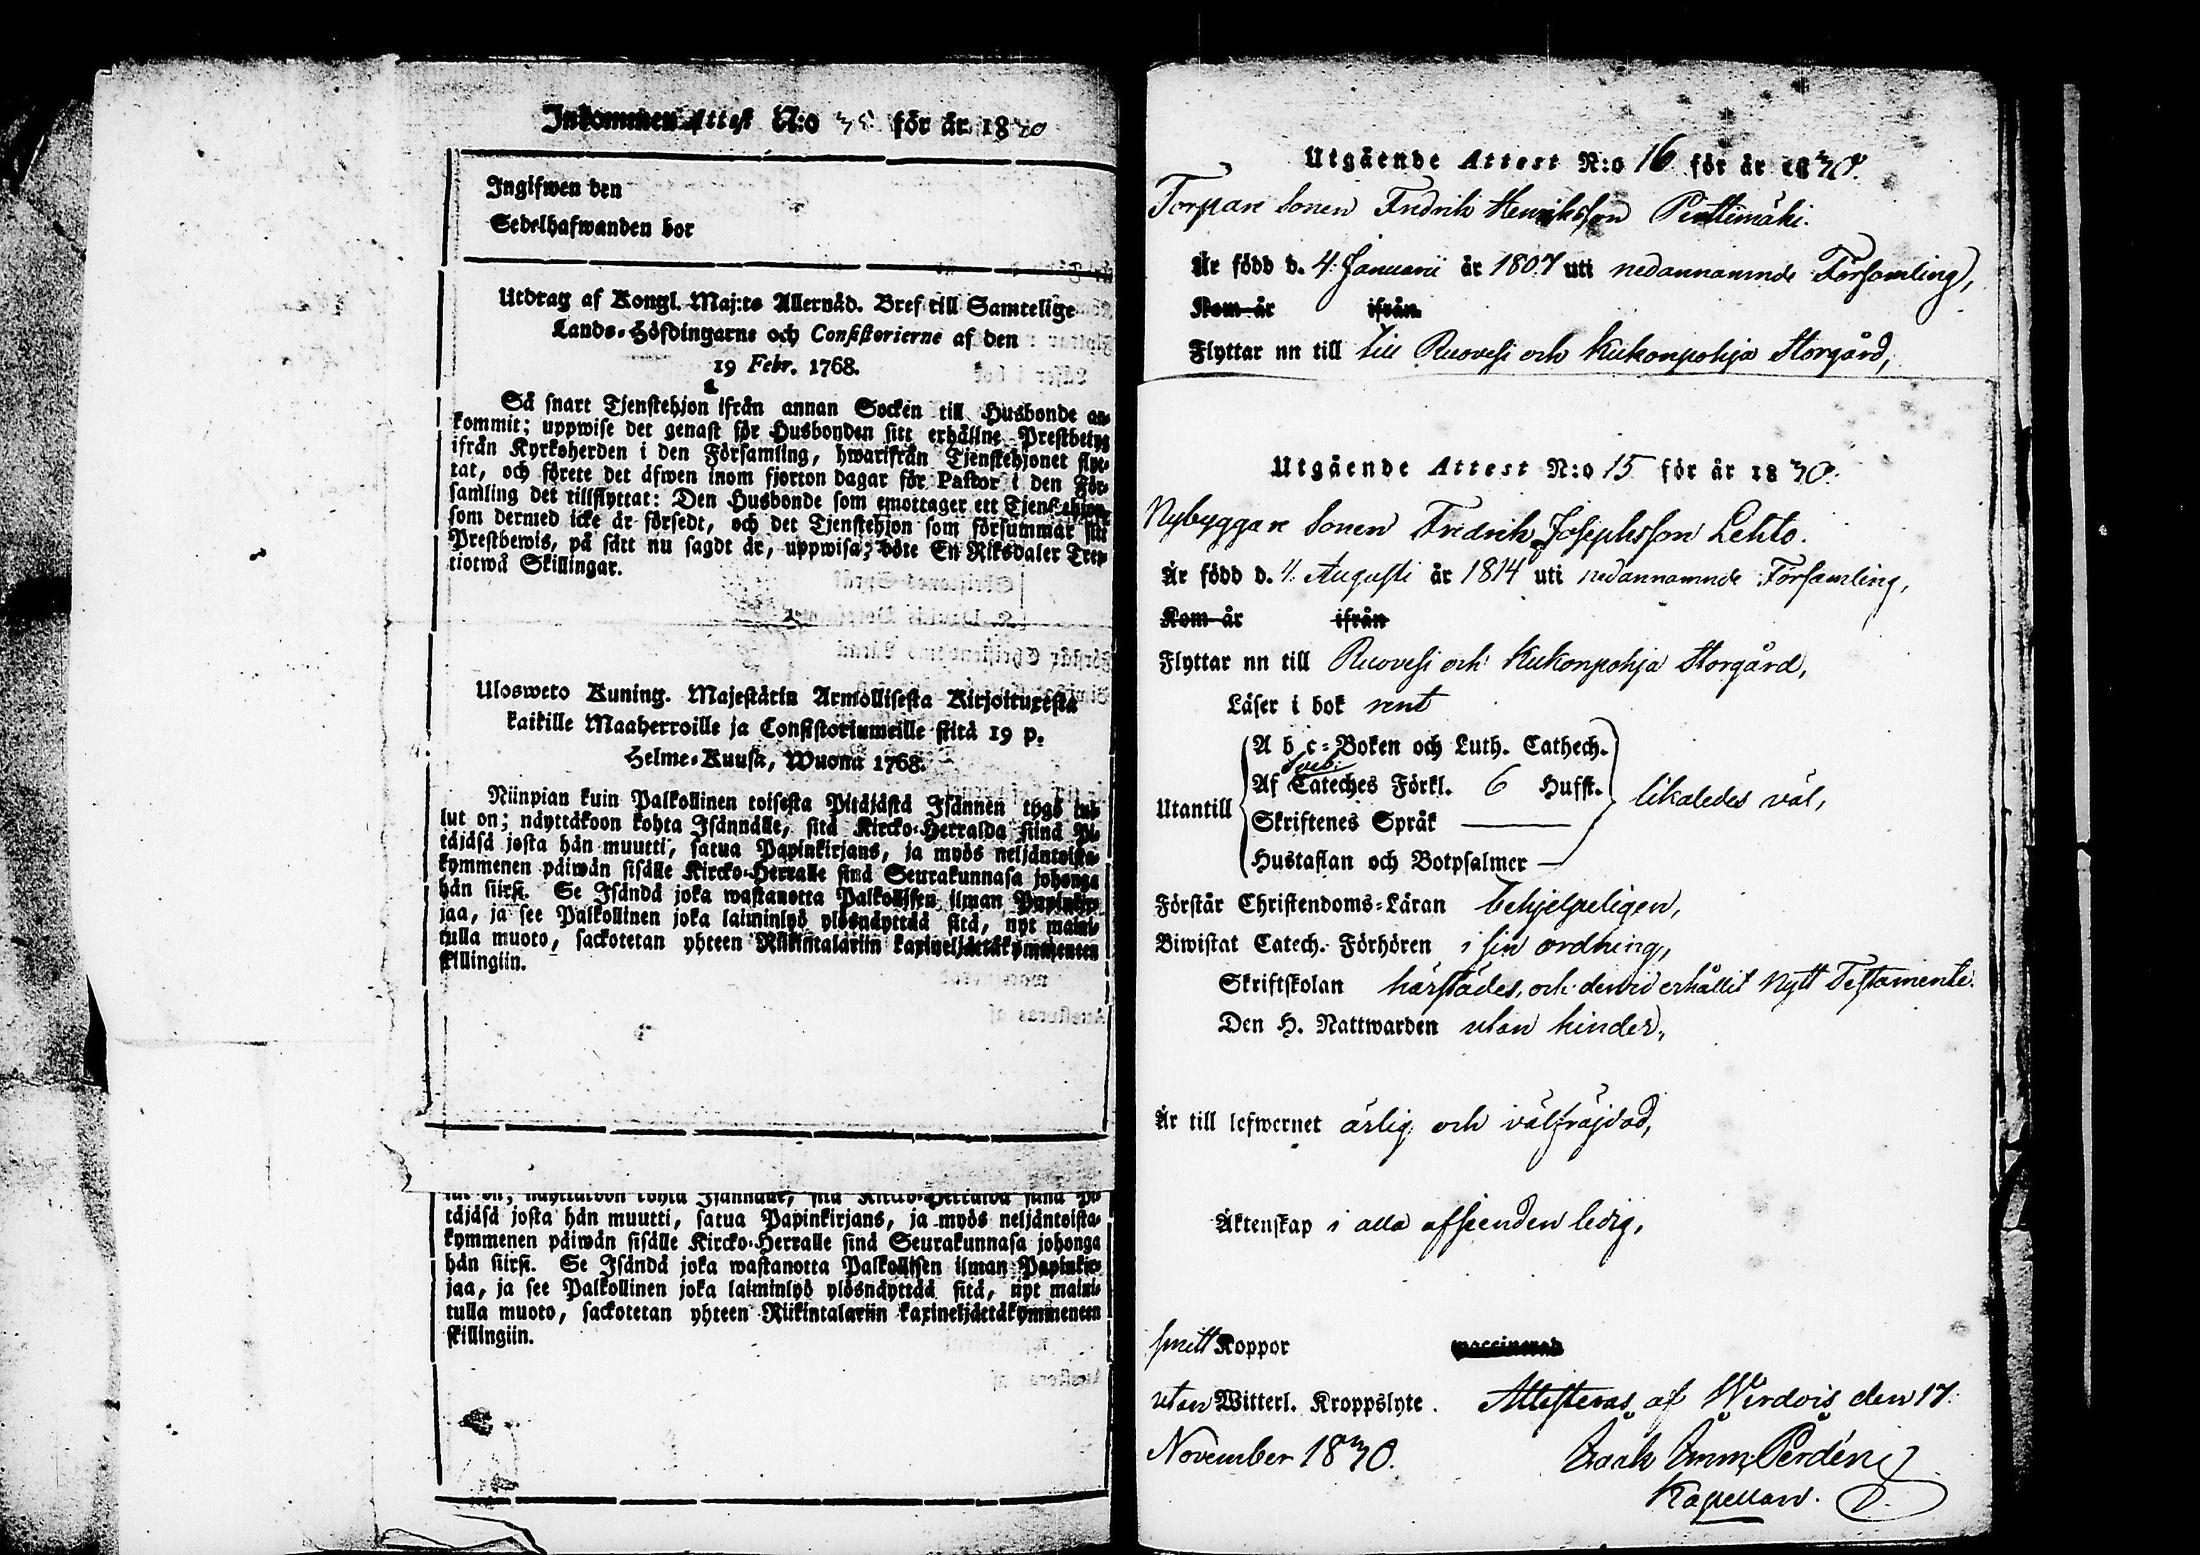 Inkommen Attest N:o 35 för år 1830
Ingifwen den
Sedelhafwanden bor
Utdrag af Kongl. Maj:ts Allernåd. Bref till Samtelige
Lands-Höfdingarne och Consistorierne af den
19 Febr. 1768.
Så snart Tjenstehjon ifrån annan Socken till Husbonde an-
kommit; uppwise det genast för Husbonden sitt erhållne Prestbetyg
ifrån Kyrkoherden i den Församling, hwarifrån Tjenstehjonet flyt-
tat, och förete det äfwen inom fjorton dagar för Pastor i den För-
samling det tillflyttat: Den Husbonde som emottager ett Tjenstehjon,
som dermed icke är försedt, och det Tjenstehjon som försummar sitt
Prestbewis, på sätt nu sagdt är, uppwisa; böte En Riksdaler Tret-
tiotwå Skillingar.
Ulosweto Kuning. Majestätin Armollisesta Kirjoituxesta
kaikille Maaherroille ja Consistoriumeille siitä 19 p.
Helme-Kuusa, Wuonna 1768.
Niinpian kuin Palkollinen toisesta Pitäjästä Isännen tygö tul-
lut on; näyttäkoon kohta Isännälle, sitä Kircko-Herralda siinä Pi-
täjäsä josta hän muutti, saatua Papinkirjans, ja myös neljäntoista-
kymmenen päiwän sisälle Kircko-Herralle siinä Seurakunnasa johonga
hän siirsi. Se Isändä joka wastanotta Palkollisen ilman Papinkir-
jaa, ja see Palkollinen joka laiminlyö ylösnäyttää sitä, nyt maini-
tulla muoto, sackotetan yhteen Riikintalariin kaxineljättäkymmeneen
skillingiin.
lut on; näyttäkoon kohta Isännälle, sitä Kircko-Herralda siinä Pi-
täjäsä josta hän muutti, saatua Papinkirjans, ja myös neljäntoista-
kymmenen päiwän sisälle Kircko-Herralle siinä Seurakunnasa johonga
hän siirsi. Se Isändä joka wastanotta Palkollisen ilman Papinkir-
jaa, ja see Palkollinen joka laiminlyö ylösnäyttää sitä, nyt maini-
tulla muoto, sackotetan yhteen Riikintalariin kaxineljättäkymmeneen
skillingiin.
Utgående Attest N:o 16 för år 1830.
Torpare Sonen Fredrik Henriksson Penttimäki.
Är född d. 4. Januarii år 1807 uti nedannamnde Församling,
Kom år ifrån
Flyttar nn till till Ruovesi och Kukonpohja Storgård,
Utgående Attest N:o 15 för år 1830.
Nybyggare Sonen Fredrik Josephsson Lehto.
Är född d. 4. Augusti år 1814 uti nedannamnde Församling,
Kom år ifrån
Flyttar nn till Ruovesi och Kukonpohja Storgård,
Läser i bok rent
A b c-Boken och Luth. Cathech.
Sveb:
Af Cateches Förkl. 6 Hufst.
Utantill likaledes väl,
Skriftenes Språk
Hustaflan och Botpsalmer
Förstår Christendoms-Läran behjelpeligen,
Biwistat Catech. Förhören i sin ordning,
Skriftskolan härstädes, och dervid erhållit Nytt Testamente.
Den H. Nattwarden utan hinder,
Är till lefwernet ärlig och välfräjdad,
Äktenskap i alla afseenden ledig,
haft Koppor waccinerad
utan Witterl. Kroppslyte. Attesteras af Wirdois den 17.
November 1830. Isach Imm. Perdén
Kapellan.